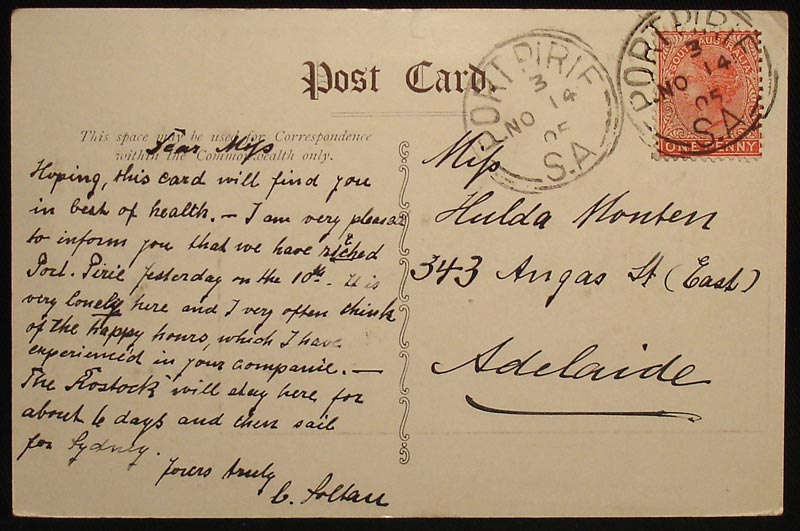 Post Card.
This space may be used for Correspondence
within the Commonwealth only.
Dear Miss
Hoping, this card will find you
in best of health. – I am very pleased
to inform you that we have riched
Port. Pirie Yesterday on the 10th. It is
very lonely here and I very often think
of the happy hours, which I have
experienced in your companie. —
The "Rostock" will stay here for
about 6 days and then sail
for Sydney.
Yours truly
C. Soltau
Miss
Hulda Monten
343 Angas St (East)
Adelaide
PORT PIRIE
3
NO 14
05
S.A
PORT PIRIE
3
NO 14
05
S.A
SOUTH AUSTRALIA
ONE PENNY